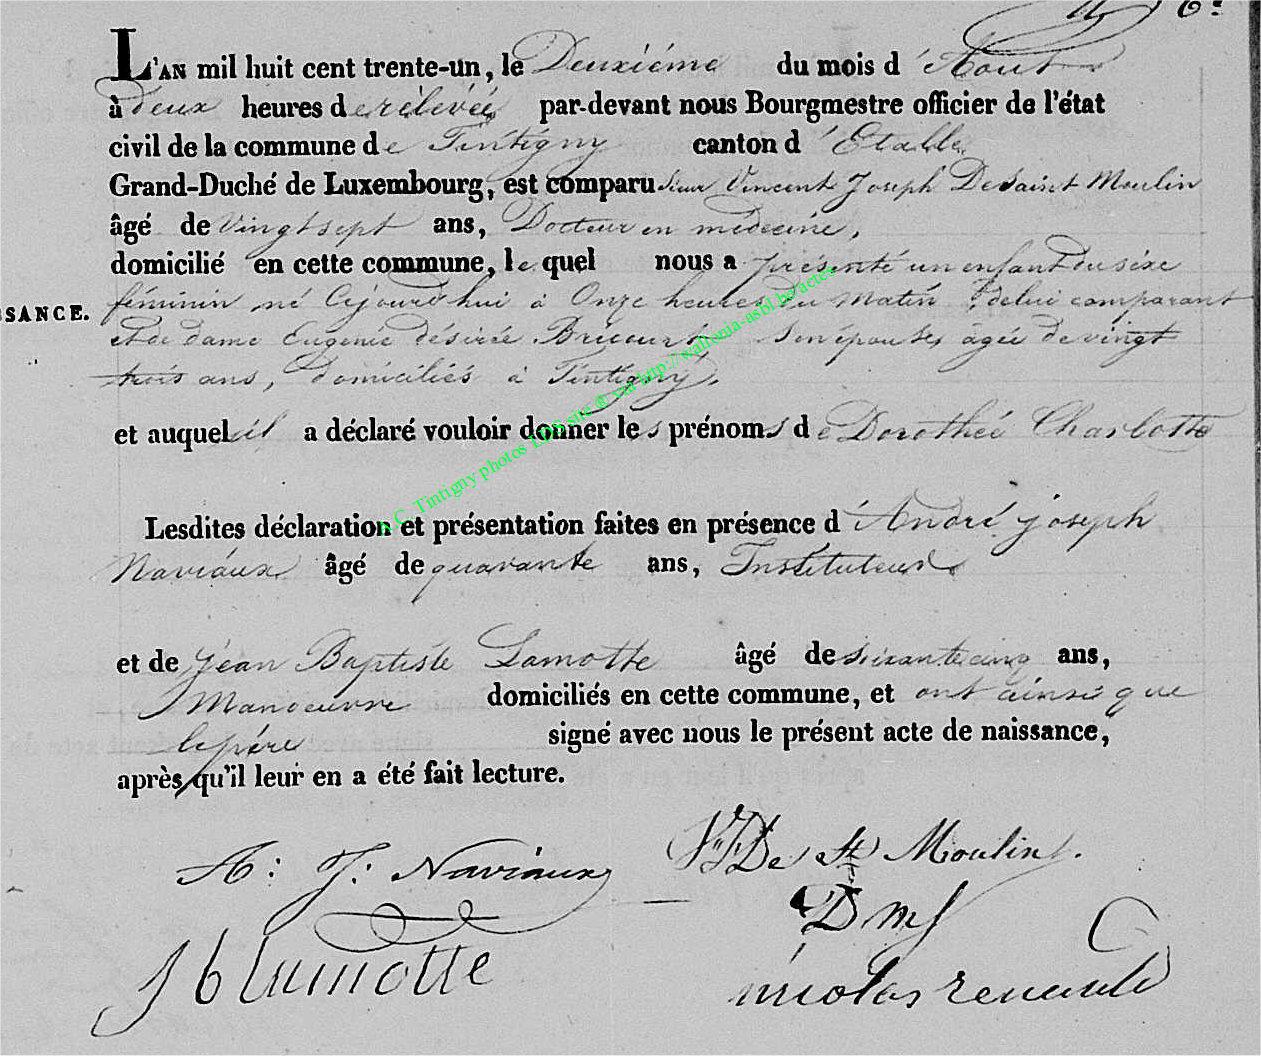 L'AN mil huit cent trente-un, le Deuxième du mois d'Aout
à deux heures de rélevée par-devant nous Bourgmestre officier de l'état
civil de la commune de Tintigny canton d'Etalle
Grand-Duché de Luxembourg, est comparu Sieur Vincent Joseph De Saint Moulin
âgé de Vingt sept ans, Docteur en médecine,
domicilié en cette commune, lequel nous a présenté un enfant du sexe
SSANCE. féminin né Cejourd'hui à Onze heures du matin, de lui comparant
et de dame Eugenie désirée Bricourt son épouse, âgée de vingt
trois ans, domiciliés à Tintigny.
et auquel il a déclaré vouloir donner les prénoms de Dorothée Charlotte
A.C. Tintigny photos LDS site @ via http://wallonia-asbl.be/actes
Lesdites déclaration et présentation faites en présence d'André joseph
Naviaux âgé de quarante ans, Instituteur
et de jean Baptiste Lamotte âgé de soixante cinq ans,
Manoeuvre domiciliés en cette commune, et ont ainsi que
le père signé avec nous le présent acte de naissance,
après qu'il leur en a été fait lecture.
A: J: Naviaux VJ De St Moulin.
D m
J b lamotte nicolas renauld